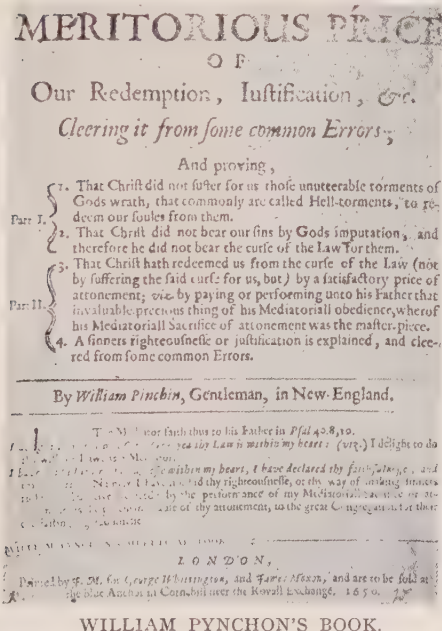 MERITORIOUS PRICE
OF
Our Redemption, Iustification, &c.
Cleering it from some common Errors;
And proving,
Part I.
1. That Christ did not suffer for us those unutterable torments of
Gods wrath, that commonly are called Hell-torments, to re-
deem our soules from them.
2. That Christ did not bear our sins by Gods imputation, and
therefore he did not bear the curse of the Law for them.
Part II.
3. That Christ hath redeemed us from the curse of the Law (not
by suffering the said curse for us, but) by a satisfactory price of
attonement; viz. by paying or performing unto his Father that
invaluable precious thing of his Mediatoriall obedience, wherof
his Mediatoriall Sacrifice of attonement was the master-piece.
4. A sinners righteousnesse or justification is explained, and clee-
red from some common Errors.
By William Pinchin, Gentleman, in New-England.
saith thus to his Father in Psal 40.8,10.
yea thy Law is within my heart: (viz.) I delight to do
within my heart, I have declared thy and
thy righteousnesse, or thy way of making sinners
by the performance of my Mediatoriall
of thy attonement, to the great Congregation
LONDON,
Printed by J. M. for George Whittington, and James Moxon, and are to be sold at
the blue Anchor in Cornhill neer the Royall Exchange. 1650.
WILLIAM PYNCHON'S BOOK.